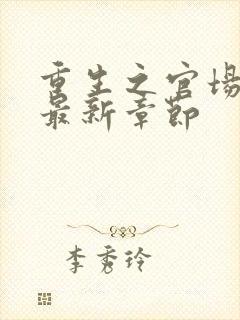 重生之官场
最新章节
李秀玲